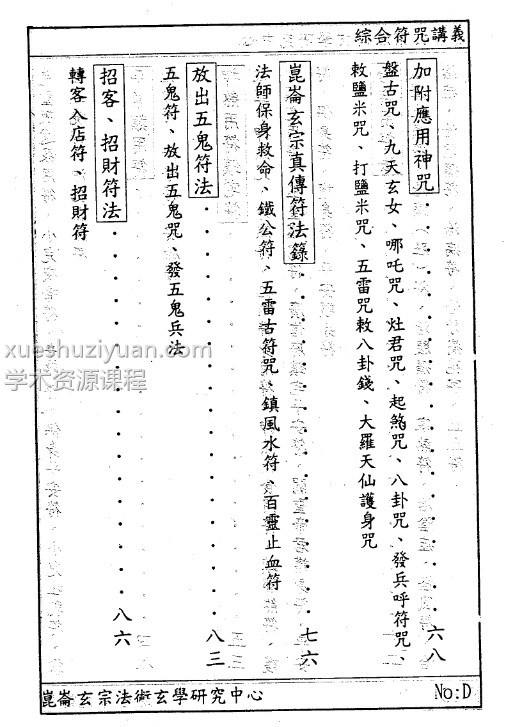 綜合符咒講義
加附應用神咒．．．．．．．．．．．．．．．．六八
盤古咒、九天玄女、哪吒咒、灶君咒、起煞咒、八卦咒、發兵呼符咒、
敕鹽米咒、打鹽米咒、五雷咒敕八卦錢、大羅天仙護身咒
崑崙玄宗真傳符法錄．．．．．．．．．．．．．七六
法師保身救命、鐵公符、五雷古符咒、鎮風水符、百靈止血符
放出五鬼符法．．．．．．．．．．．．．．．．八三
五鬼符、放出五鬼咒、發五鬼兵法
招客、招財符法．．．．．．．．．．．．．．．八六
轉客入店符、招財符
xueshuziyuan.com
学术资源课程
崑崙玄宗法術玄學研究中心
No:D